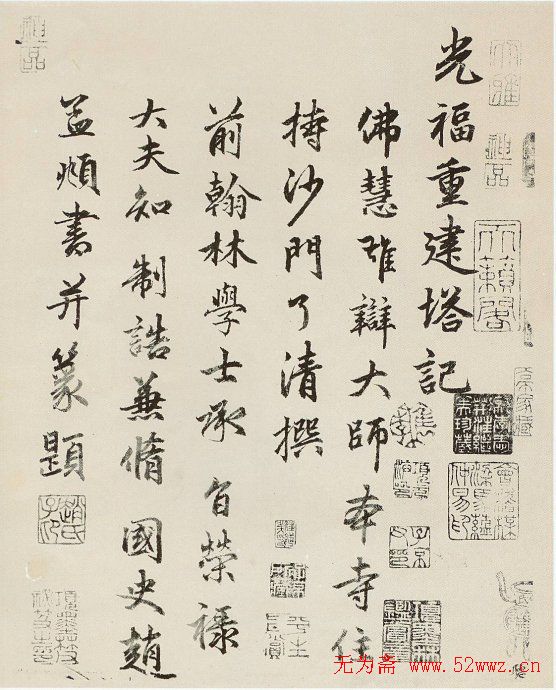 光福重建塔記
佛慧雄辯大師本寺住
持沙門了清撰
前翰林學士承旨榮祿
大夫知制誥兼脩國史趙
孟頫書并篆題
大雅
天籟閣
趙氏子昂
无为斋 www.52wwz.cn